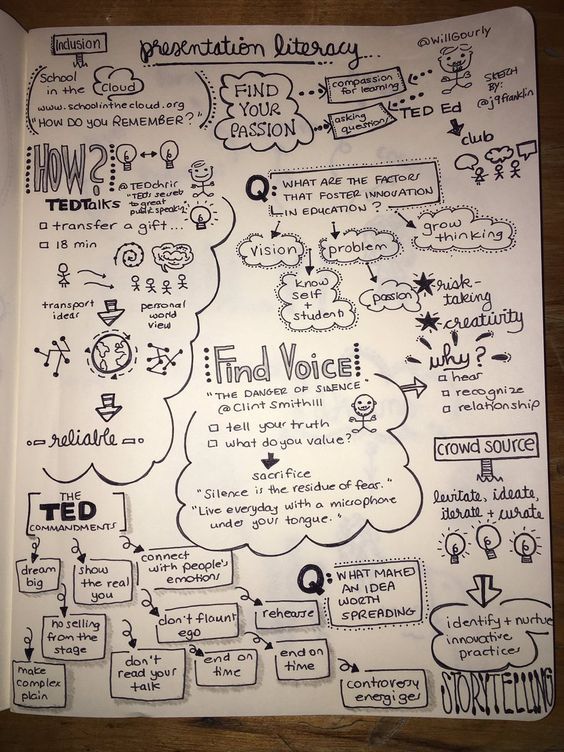 Inclusion
presentation literacy
@WillGourly
School
in the Cloud
www.schoolinthecloud.org
"HOW DO YOU REMEMBER?"
FIND
YOUR
PASSION
compassion
for learning
asking
questions
TED Ed
SKETCH
BY:
@j9franklin
club
HOW?
TEDTalks
@TEDchris
"TED's secret
to great
public speaking"
transfer a gift...
18 min
transport
ideas
personal
world
view
reliable
Q: WHAT ARE THE FACTORS
THAT FOSTER INNOVATION
IN EDUCATION?
vision
problem
grow
thinking
know
self
+
student
passion
risk-
taking
creativity
Find Voice
"THE DANGER OF SILENCE"
@ClintSmithIII
tell your truth
what do you value?
sacrifice
"Silence is the residue of fear."
"Live everyday with a microphone
under your tongue."
why?
hear
recognize
relationship
crowd source
levitate, ideate,
iterate + curate
identify + nurture
innovative
practices
STORYTELLING
THE
TED
COMMANDMENTS
dream
big
show
the real
you
connect
with people's
emotions
no selling
from the
stage
don't flaunt
ego
rehearse
make
complex
plain
don't
read your
talk
end on
time
end on
time
controversy
energizes
Q: WHAT MAKES
AN IDEA
WORTH
SPREADING